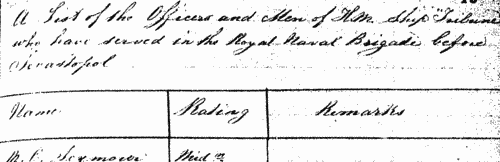 A List of the Officers and Men of H.M. Ship Tribune
who have served in the Royal Naval Brigade before
Sevastopol
Name Rating Remarks
Seymour Mid